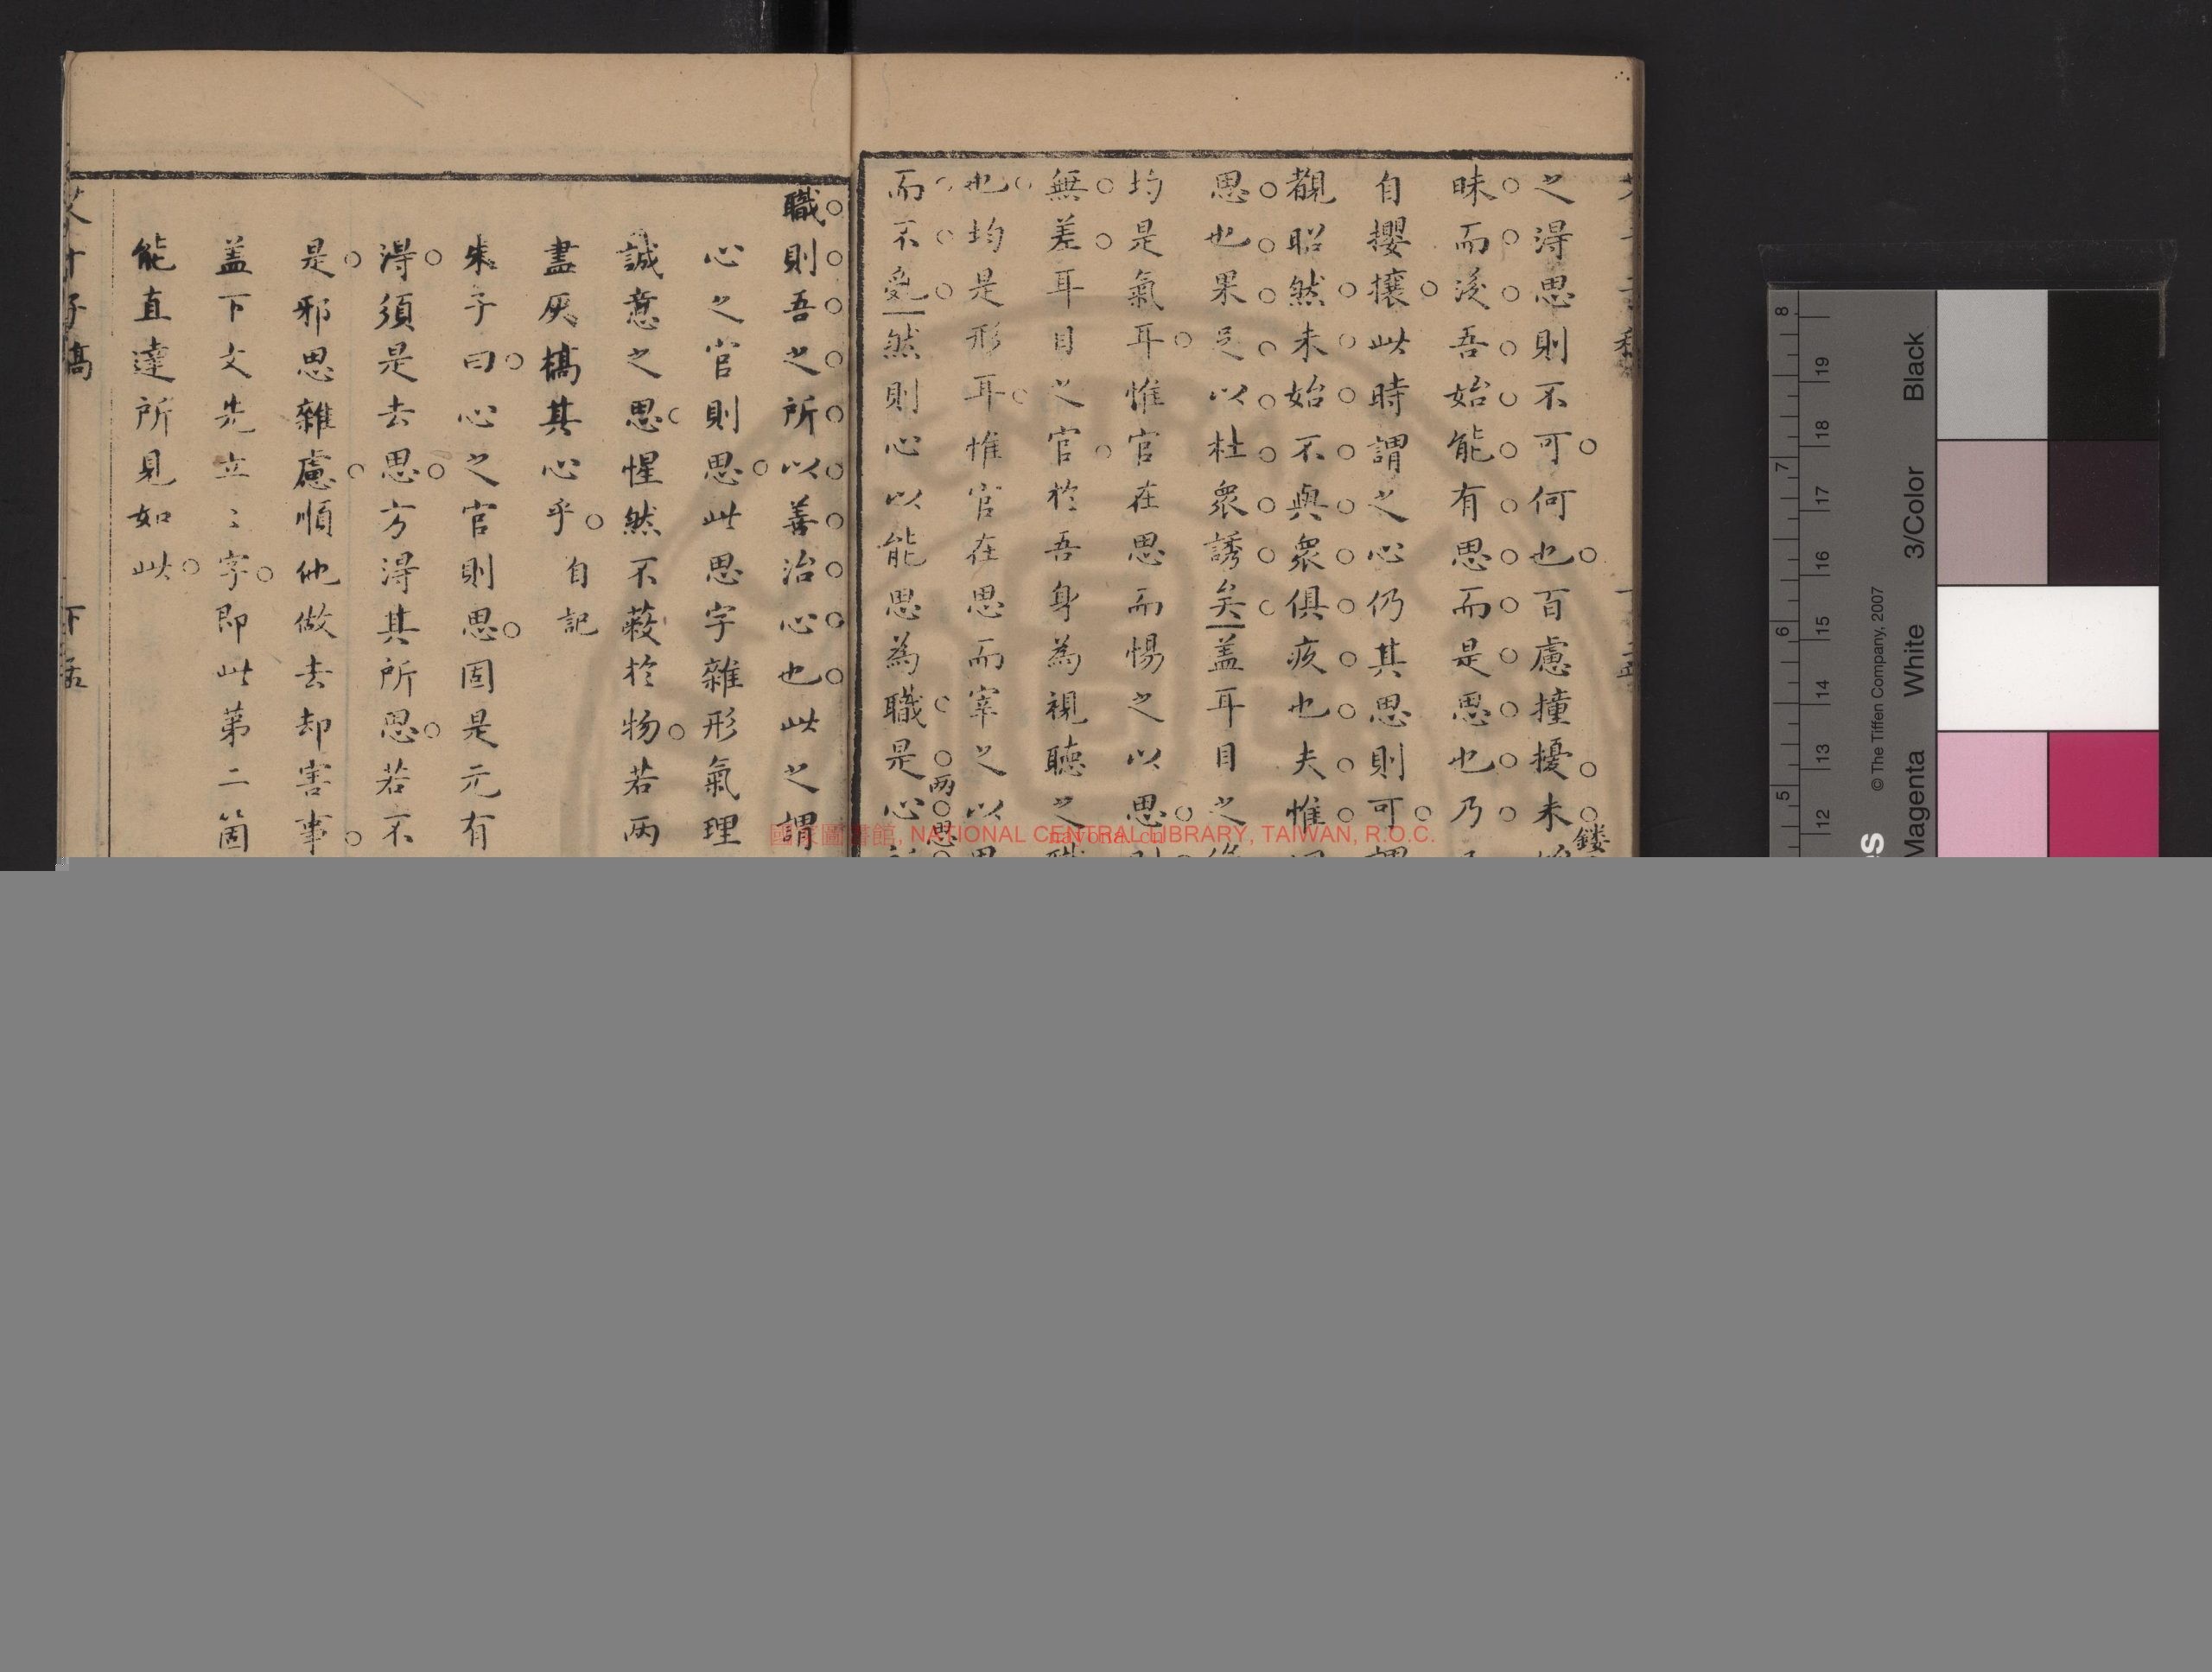 之得思則不可何也百慮撞擾未
鏤
昧而後吾始能有思而是思也乃
自攖攘此時謂之心仍其思則可
覩昭然未始不與衆俱疲也夫惟
思也果足以杜衆誘矣蓋耳目之
均是氣耳惟官在思而惕之以思
無差耳目之官於吾身為視聽之職
也均是形耳惟官在思而宰之以思
而不亂然則心以能思為職是心
兩思
職則吾之所以善治心也此之謂
心之官則思此思字雜形氣理
誠意之思惺然不蔽於物若兩
盡灰槁其心乎 自記
朱子曰心之官則思固是元有
得須是去思方得其所思若不
是邪思雜慮順他做去却害事
盖下文先立〻字即此第二箇
能直達所見如此
艾千子稿
下孟
國家圖書館, NATIONAL CENTRAL LIBRARY, TAIWAN, R.O.C.
8
7
6
5
19
18
17
16
15
14
13
12
© The Tiffen Company, 2007
Black
3/Color
White
Magenta